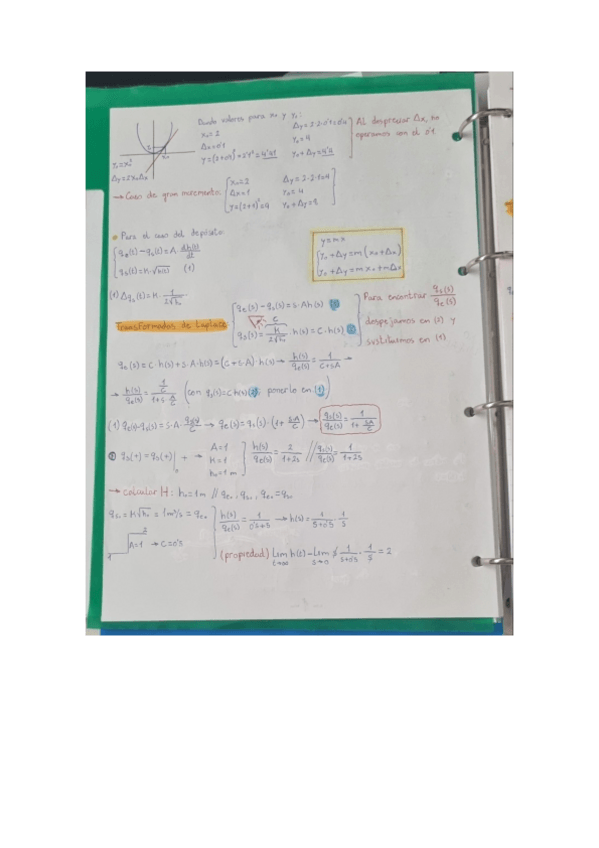 Dando valores para x₀ y y₀:
x₀=2
Δx=0'1
y=(2+0'1)²=2'1²=4'41
Δy=2·2·0'1=0'4
y₀=4
y₀+Δy=4'4
Al despreciar Δx, no
operamos con el 0'1
y₀=x₀²
Δy=2x₀Δx
→ Caso de gran incremento:
x₀=2
Δx=1
Δy=2·2·1=4
y₀=4
• Para el caso del depósito:
qe(t)-qs(t)=A·dh(t)/dt
qs(t)=K·√h(t) (1)
y=mx
y₀+Δy=m(x₀+Δx)
y₀+Δy=mx₀+mΔx
(1) Δqs(t)=K·1/2√h₀
Transformadas de Laplace
qe(s)-qs(s)=s·Ah(s) (1)
C
qs(s)=K/2√h₀·h(s)=C·h(s) (2)
Para encontrar qs(s)/qe(s)
despejamos en (2) y
sustituimos en (1)
qe(s)=C·h(s)+s·A·h(s)=(C+s·A)·h(s)→ h(s)/qe(s)=1/C+sA →
→ h(s)/qe(s)=1/C/1+s·A/C (con qs(s)=Ch(s)(2), ponerlo en (1))
(1) qe(s)-qs(s)=s·A·qs(s)/C → qe(s)=qs(s)·(1+sA/C) → qs(s)/qe(s)=1/1+sA/C
A=1
K=1
h₀=1m
h(s)/qe(s)=2/1+2s // qs(s)/qe(s)=1/1+2s
→ calcular H: h₀=1m // qe₀, qs₀, qe₀=qs₀
A=1 → C=0'5
h(s)/qe(s)=1/0'5+s → h(s)=1/s+0'5·1/s
(propiedad) Lim h(t)=Lim s 1/s+0'5·1/s=2
t→∞ s→0